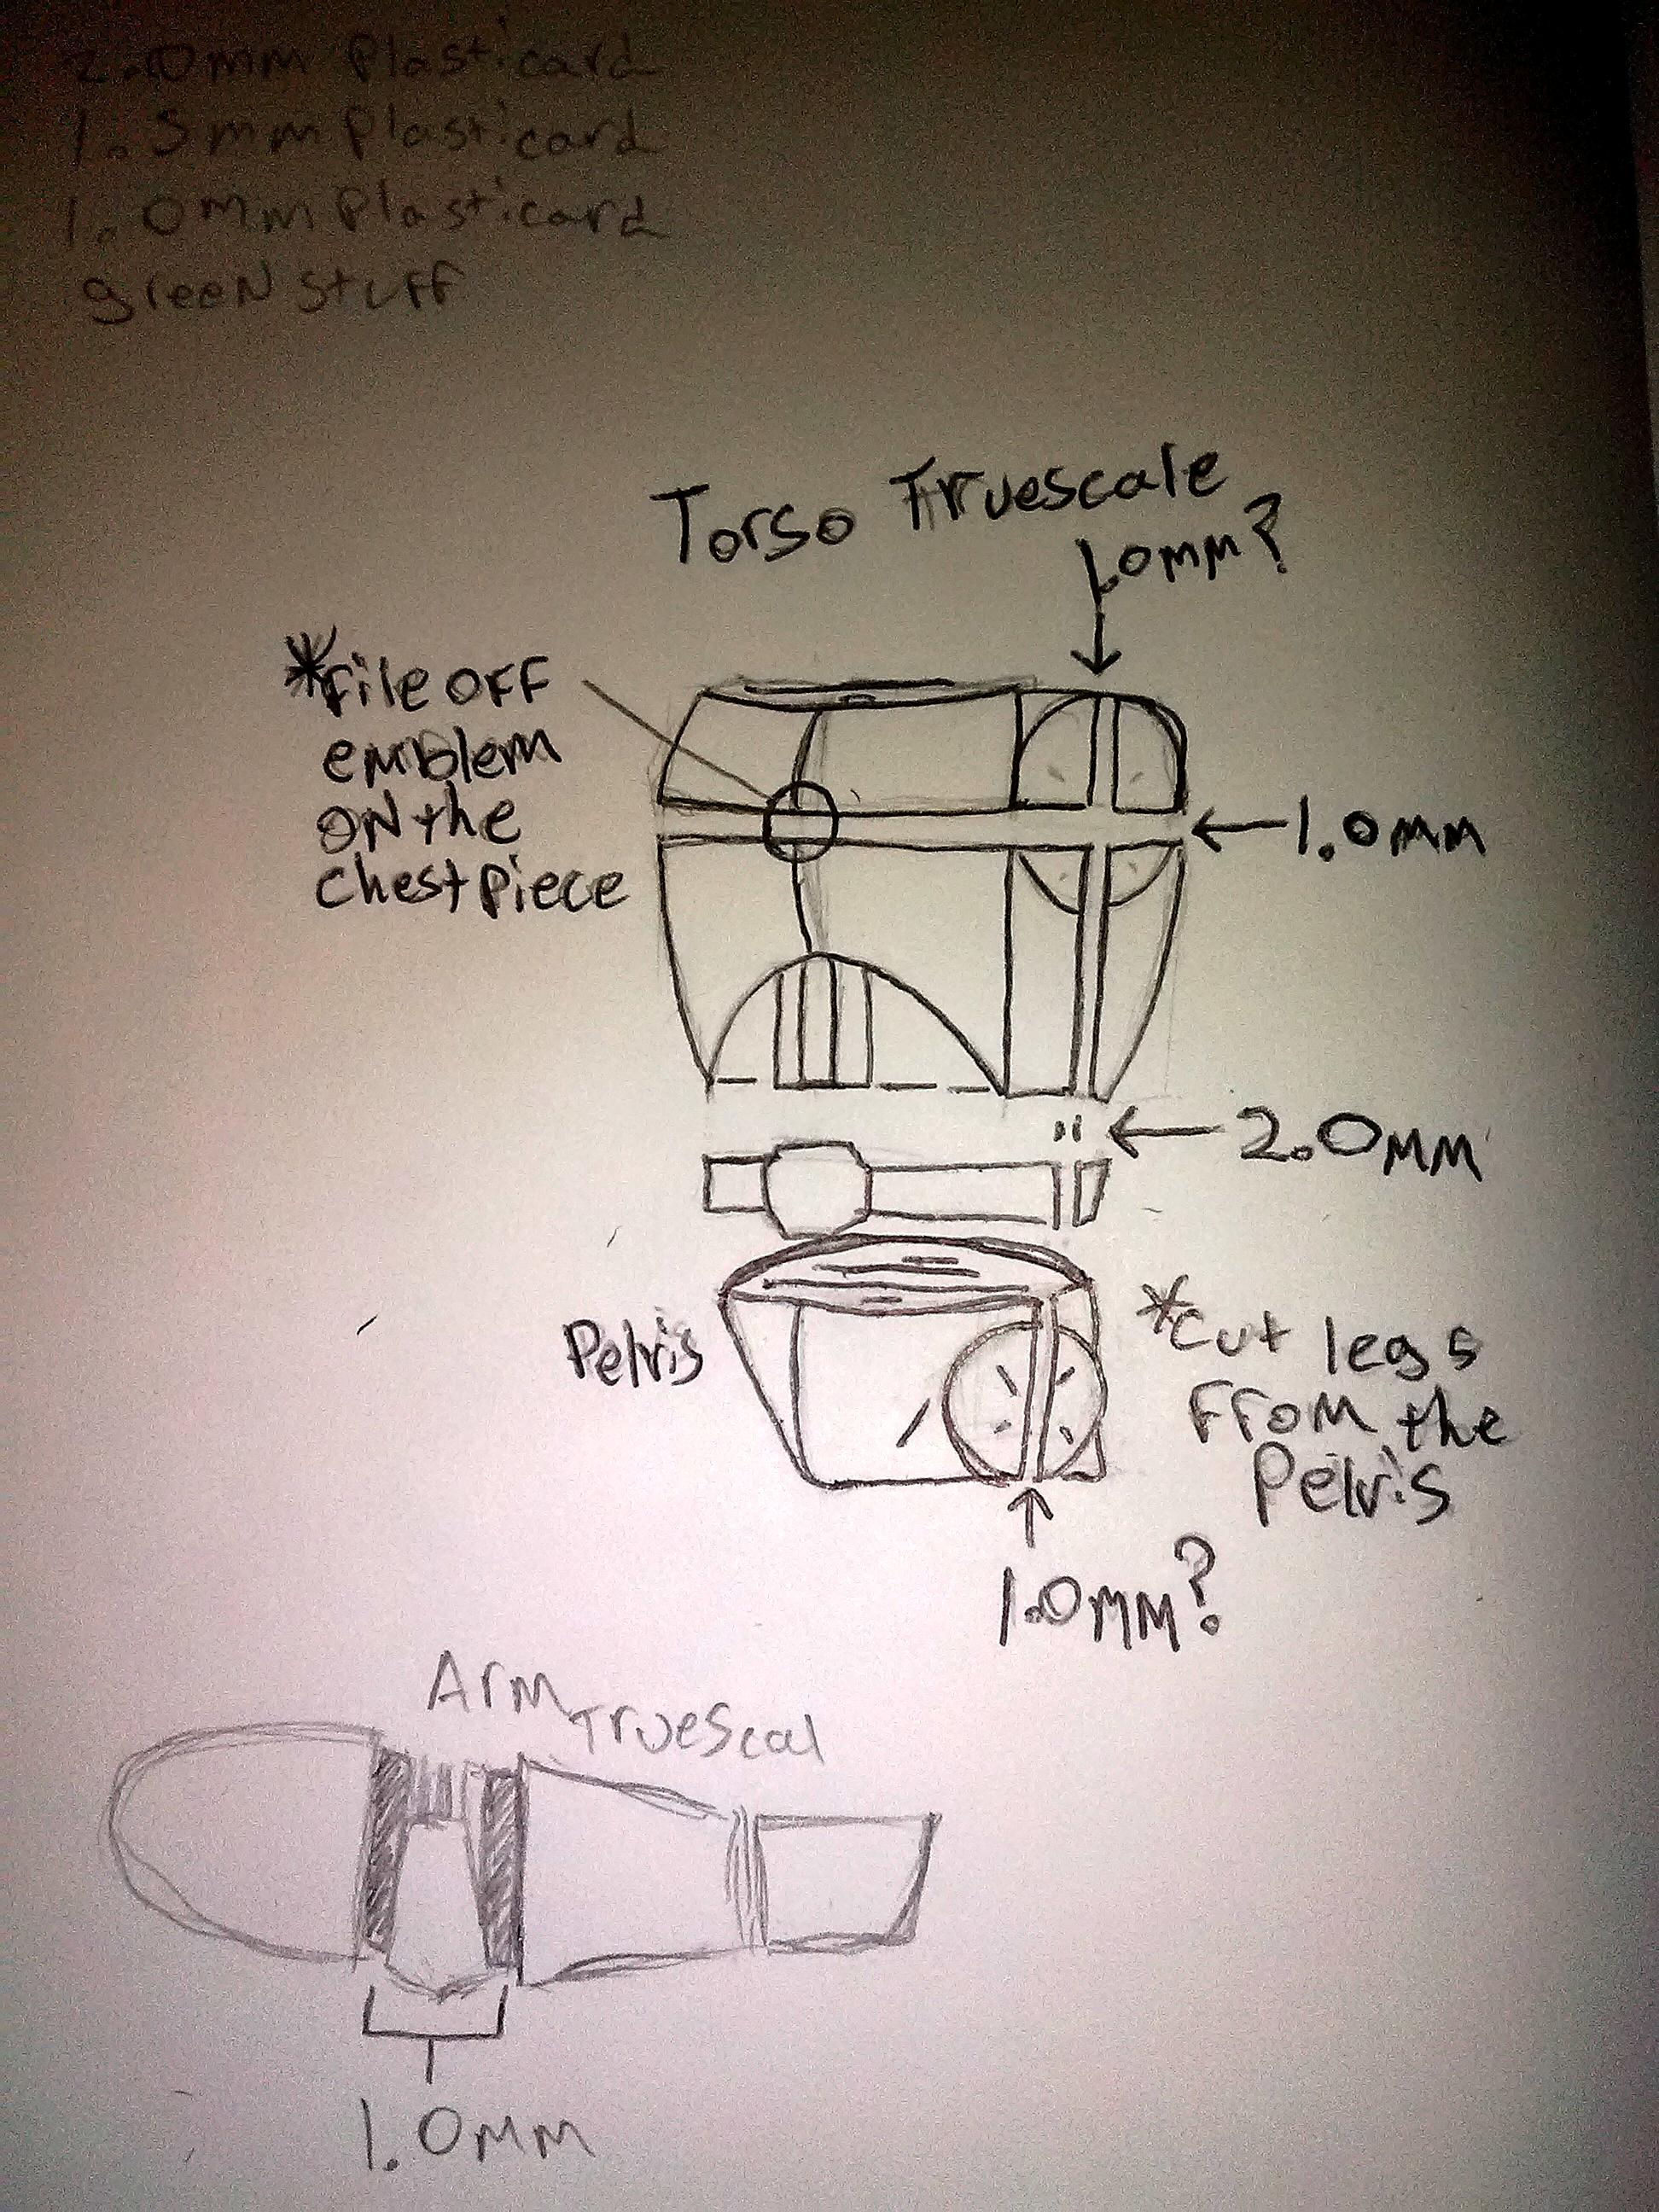 2.0mm Plasticard
1.5mm Plasticard
1.0mm Plasticard
green stuff
Torso Truescale
1.0mm?
*file off
emblem
on the
chest piece
1.0mm
2.0mm
Pelvis
*cut legs
from the
Pelvis
1.0mm?
Arm
Truescal
1.0mm